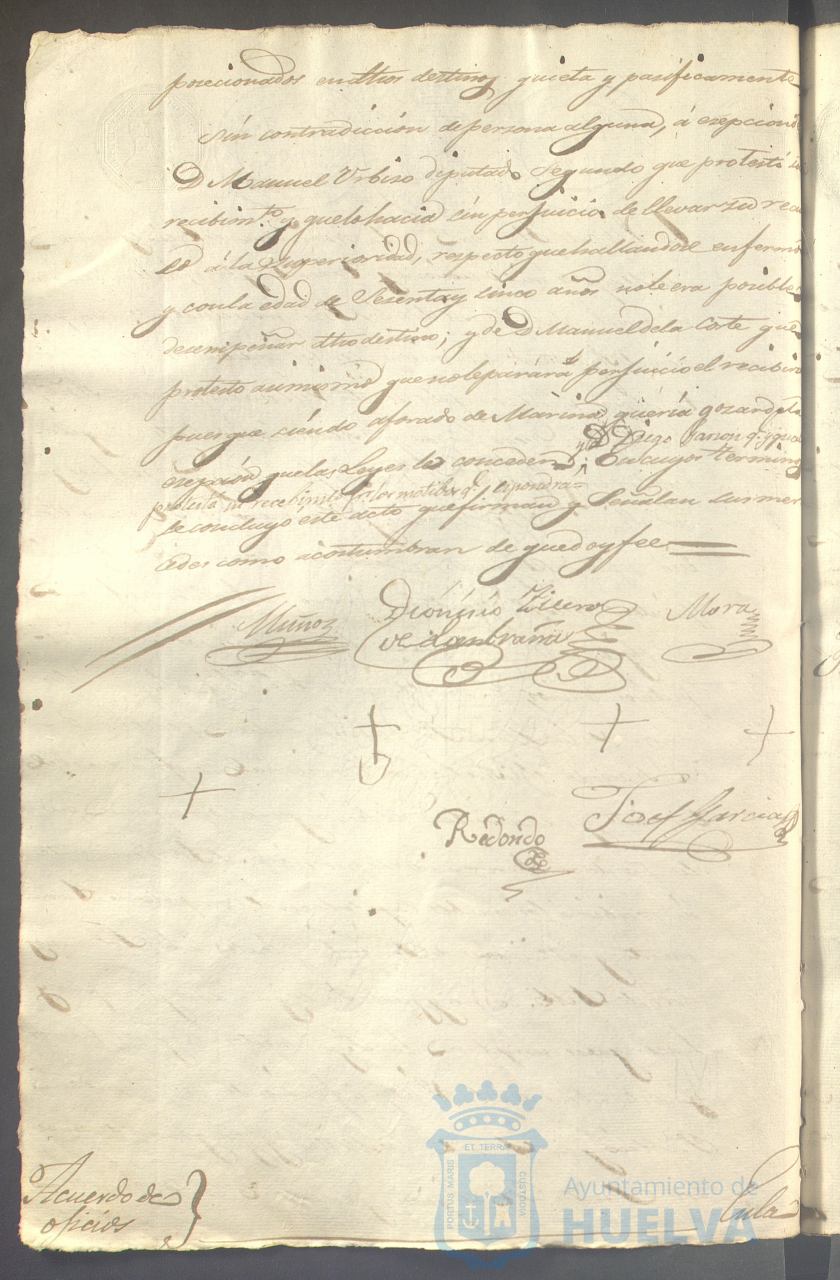 posecionados en dhos destinos quieta y pasificamente
sin contradiccion de persona alguna, á esepcion de
D Manuel Urbiso diputado Segundo que protestó su
recibimto y que lo hacia sin perjuicio de llevar su recur
so á la Superioridad, respecto que hallandose enfermo
y con la edad de Sesenta y cinco años no le era posible
desempeñar dho destino; y de D Manuel de la Corte que
protesto asimismo que no le parára perjuicio el recibirse
puesque siendo aforado de Marina queria gozar de la
y de D Diego q. ygual
esepcion que las Leyes le conceden; En cuyos terminos
protestá su recibimto por los motibos q. espondra=
se concluyó este acto que firman y Señalan sus mer
cedes como acostumbran de que doy fee
Muñoz
Dionisio
de Zambrana
Mora
Josef Garcia
Redondo
Acuerdo de
oficios
En la
ET TERRÆ
PORTUS MARIS
CUSTODIA
Ayuntamiento de
HUELVA